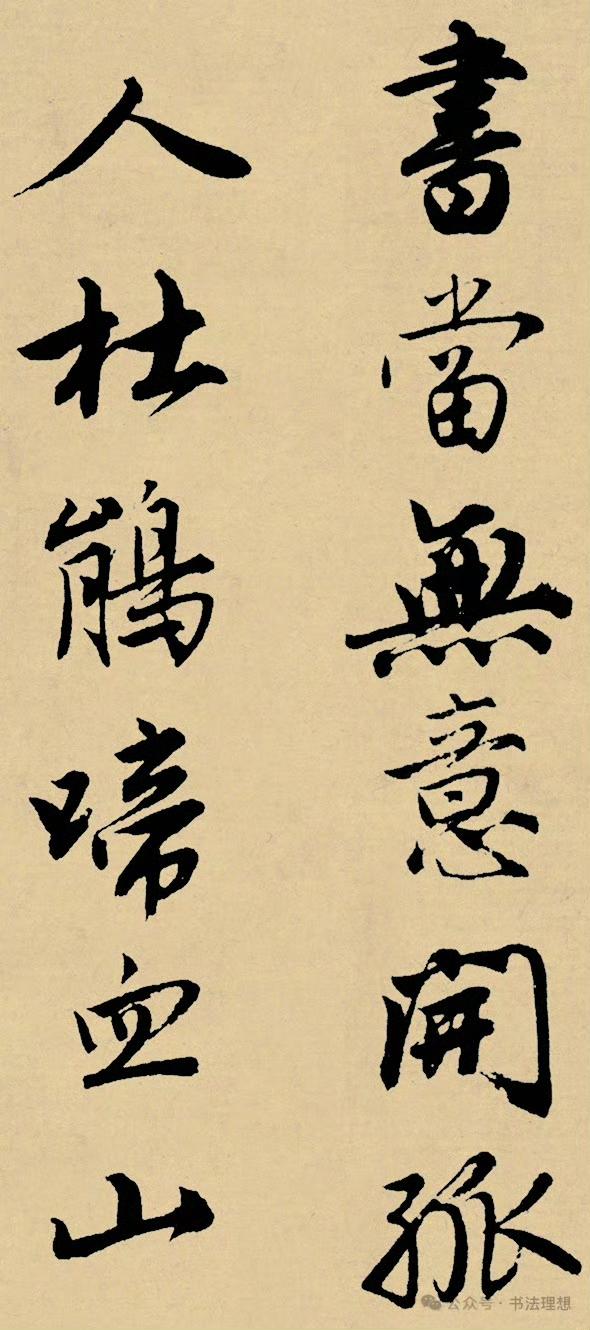 書當無意開孤
人杜鵑啼血山
公众号 · 书法理想